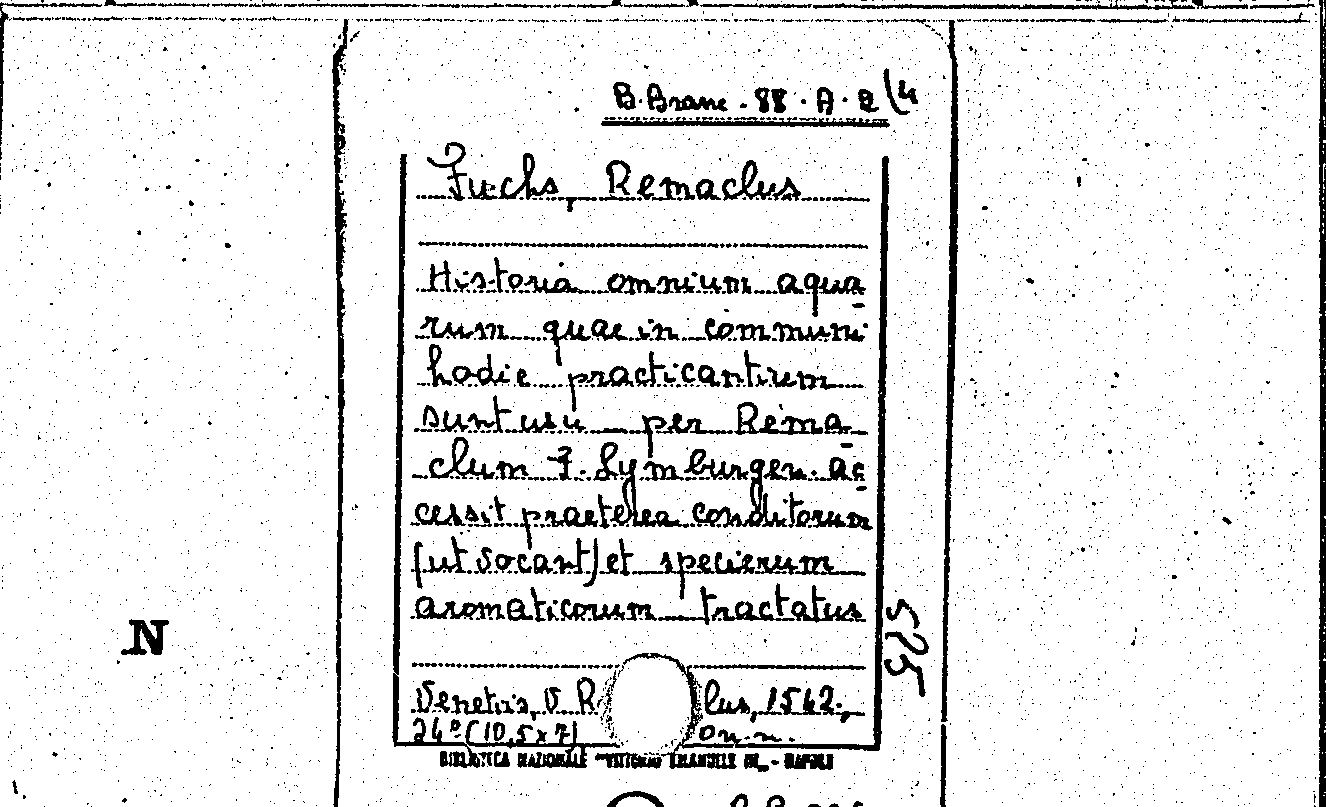 B. Branc. 88. A. 2 (4
Fuchs, Remaclus
Historia omnium aqua
rum quae in communi
hodie practicantium
sunt usu per Rema
clum F. Lymburgen. ac
cessit praeterea conditorum
(ut vocant) et specierum
aromaticorum tractatus
525
N
Venetiis, V. R lus, 1542.,
24° (10,5x7) on. n.
BIBLIOTECA NAZIONALE "VITTORIO EMANUELE III" - NAPOLI